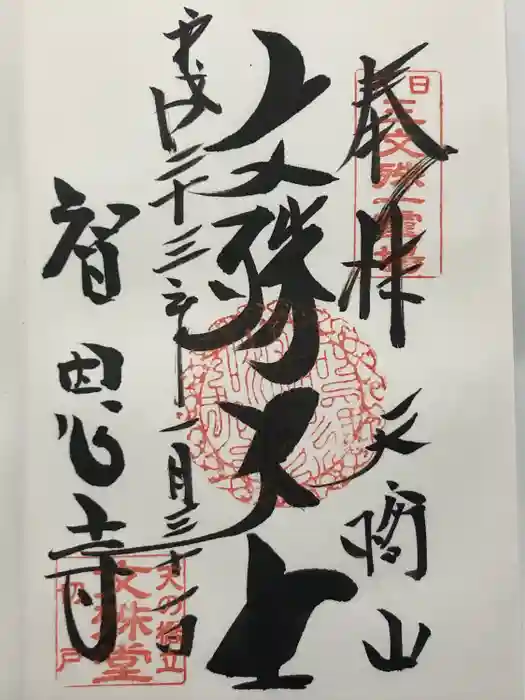 奉拝
天橋山
日三文殊一霊場
文殊大士
平成二十三年一月三十一日
智恩寺
天の橋立
文殊堂
切戸